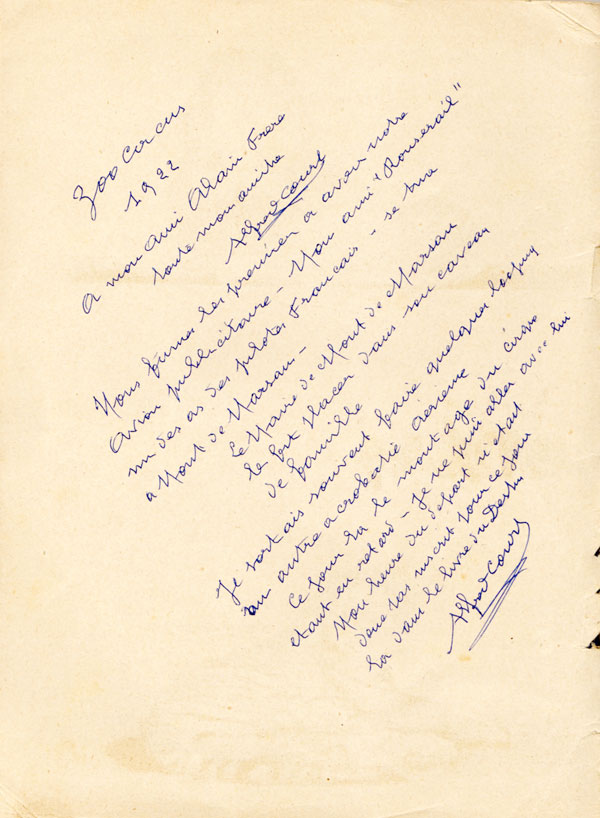 Zoo Circus
1922
A mon ami Alain Frere
toute mon amitié
Alfred Court
Nous fumes les premiers a avoir notre
avion publicitaire - Mon ami "Rousserail"
un des as des pilotes Francais - se tua
a Mont de Marsan -
Le Maire de Mont de Marsan
le fit placer dans son caveau
de famille
Je sortais souvent faire quelques looping
ou autre acrobatie aerienne
Ce jour la le montage du cirque
etant en retard - Je ne puis aller avec lui
Mon heure du depart n'etait
donc pas inscrit pour ce jour
la dans le livre du Destin
Alfred Court